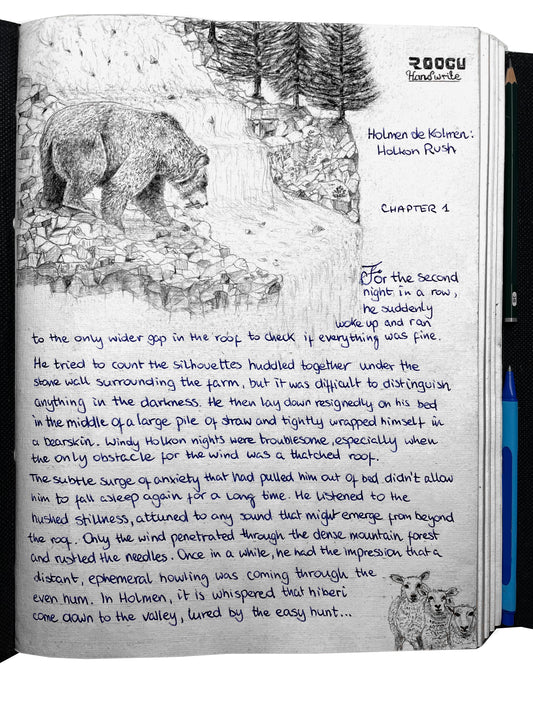 ROOGU
Handwrite
Holmen de Kolmen:
Holkon Rush
CHAPTER 1
For the second
night in a row,
he suddenly
woke up and ran
to the only wider gap in the roof to check if everything was fine.
He tried to count the silhouettes huddled together under the
stone wall surrounding the farm, but it was difficult to distinguish
anything in the darkness. He then lay down resignedly on his bed
in the middle of a large pile of straw and tightly wrapped himself in
a bearskin. Windy Holkon nights were troublesome, especially when
the only obstacle for the wind was a thatched roof.
The subtle surge of anxiety that had pulled him out of bed didn't allow
him to fall asleep again for a long time. He listened to the
hushed stillness, attuned to any sound that might emerge from beyond
the roof. Only the wind penetrated through the dense mountain forest
and rustled the needles. Once in a while, he had the impression that a
distant, ephemeral howling was coming through the
even hum. In Holmen, it is whispered that hiberi
come down to the valley, lured by the easy hunt...